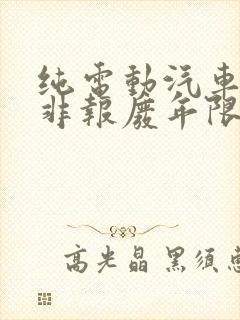 纯電動汽車
非報廢年限
高光晶 黑須